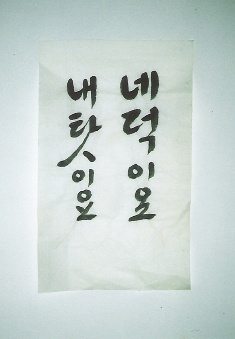 네덕이오
내탓이요